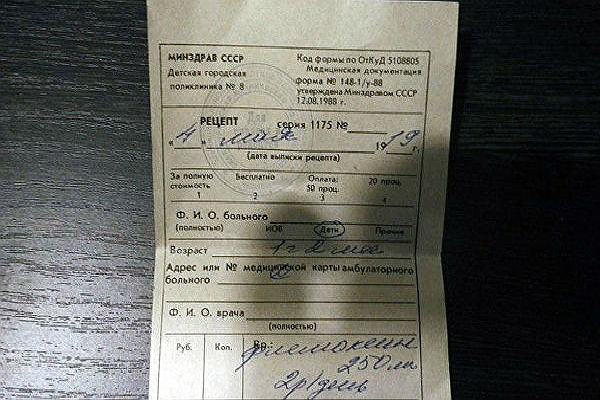 МИНЗДРАВ СССР
Детская городская
поликлиника № 8
Код формы по ОтКуД 5108805
Медицинская документация
форма № 148-1/у-88
утверждена Минздравом СССР
12.08.1988 г.
Для
РЕЦЕПТ серия 1175 №
"4" мая 1919 г.
(дата выписки рецепта)
За полную стоимость Бесплатно Оплата: 50 проц. 20 проц.
1 2 3 4
Ф. И. О. больного
(полностью) ИОВ Дети Прочие
Возраст 1 г 2 мес
Адрес или № медицинской карты амбулаторного
больного
Ф. И. О. врача
(полностью)
Руб. Коп. Rp.:
250
2р/день